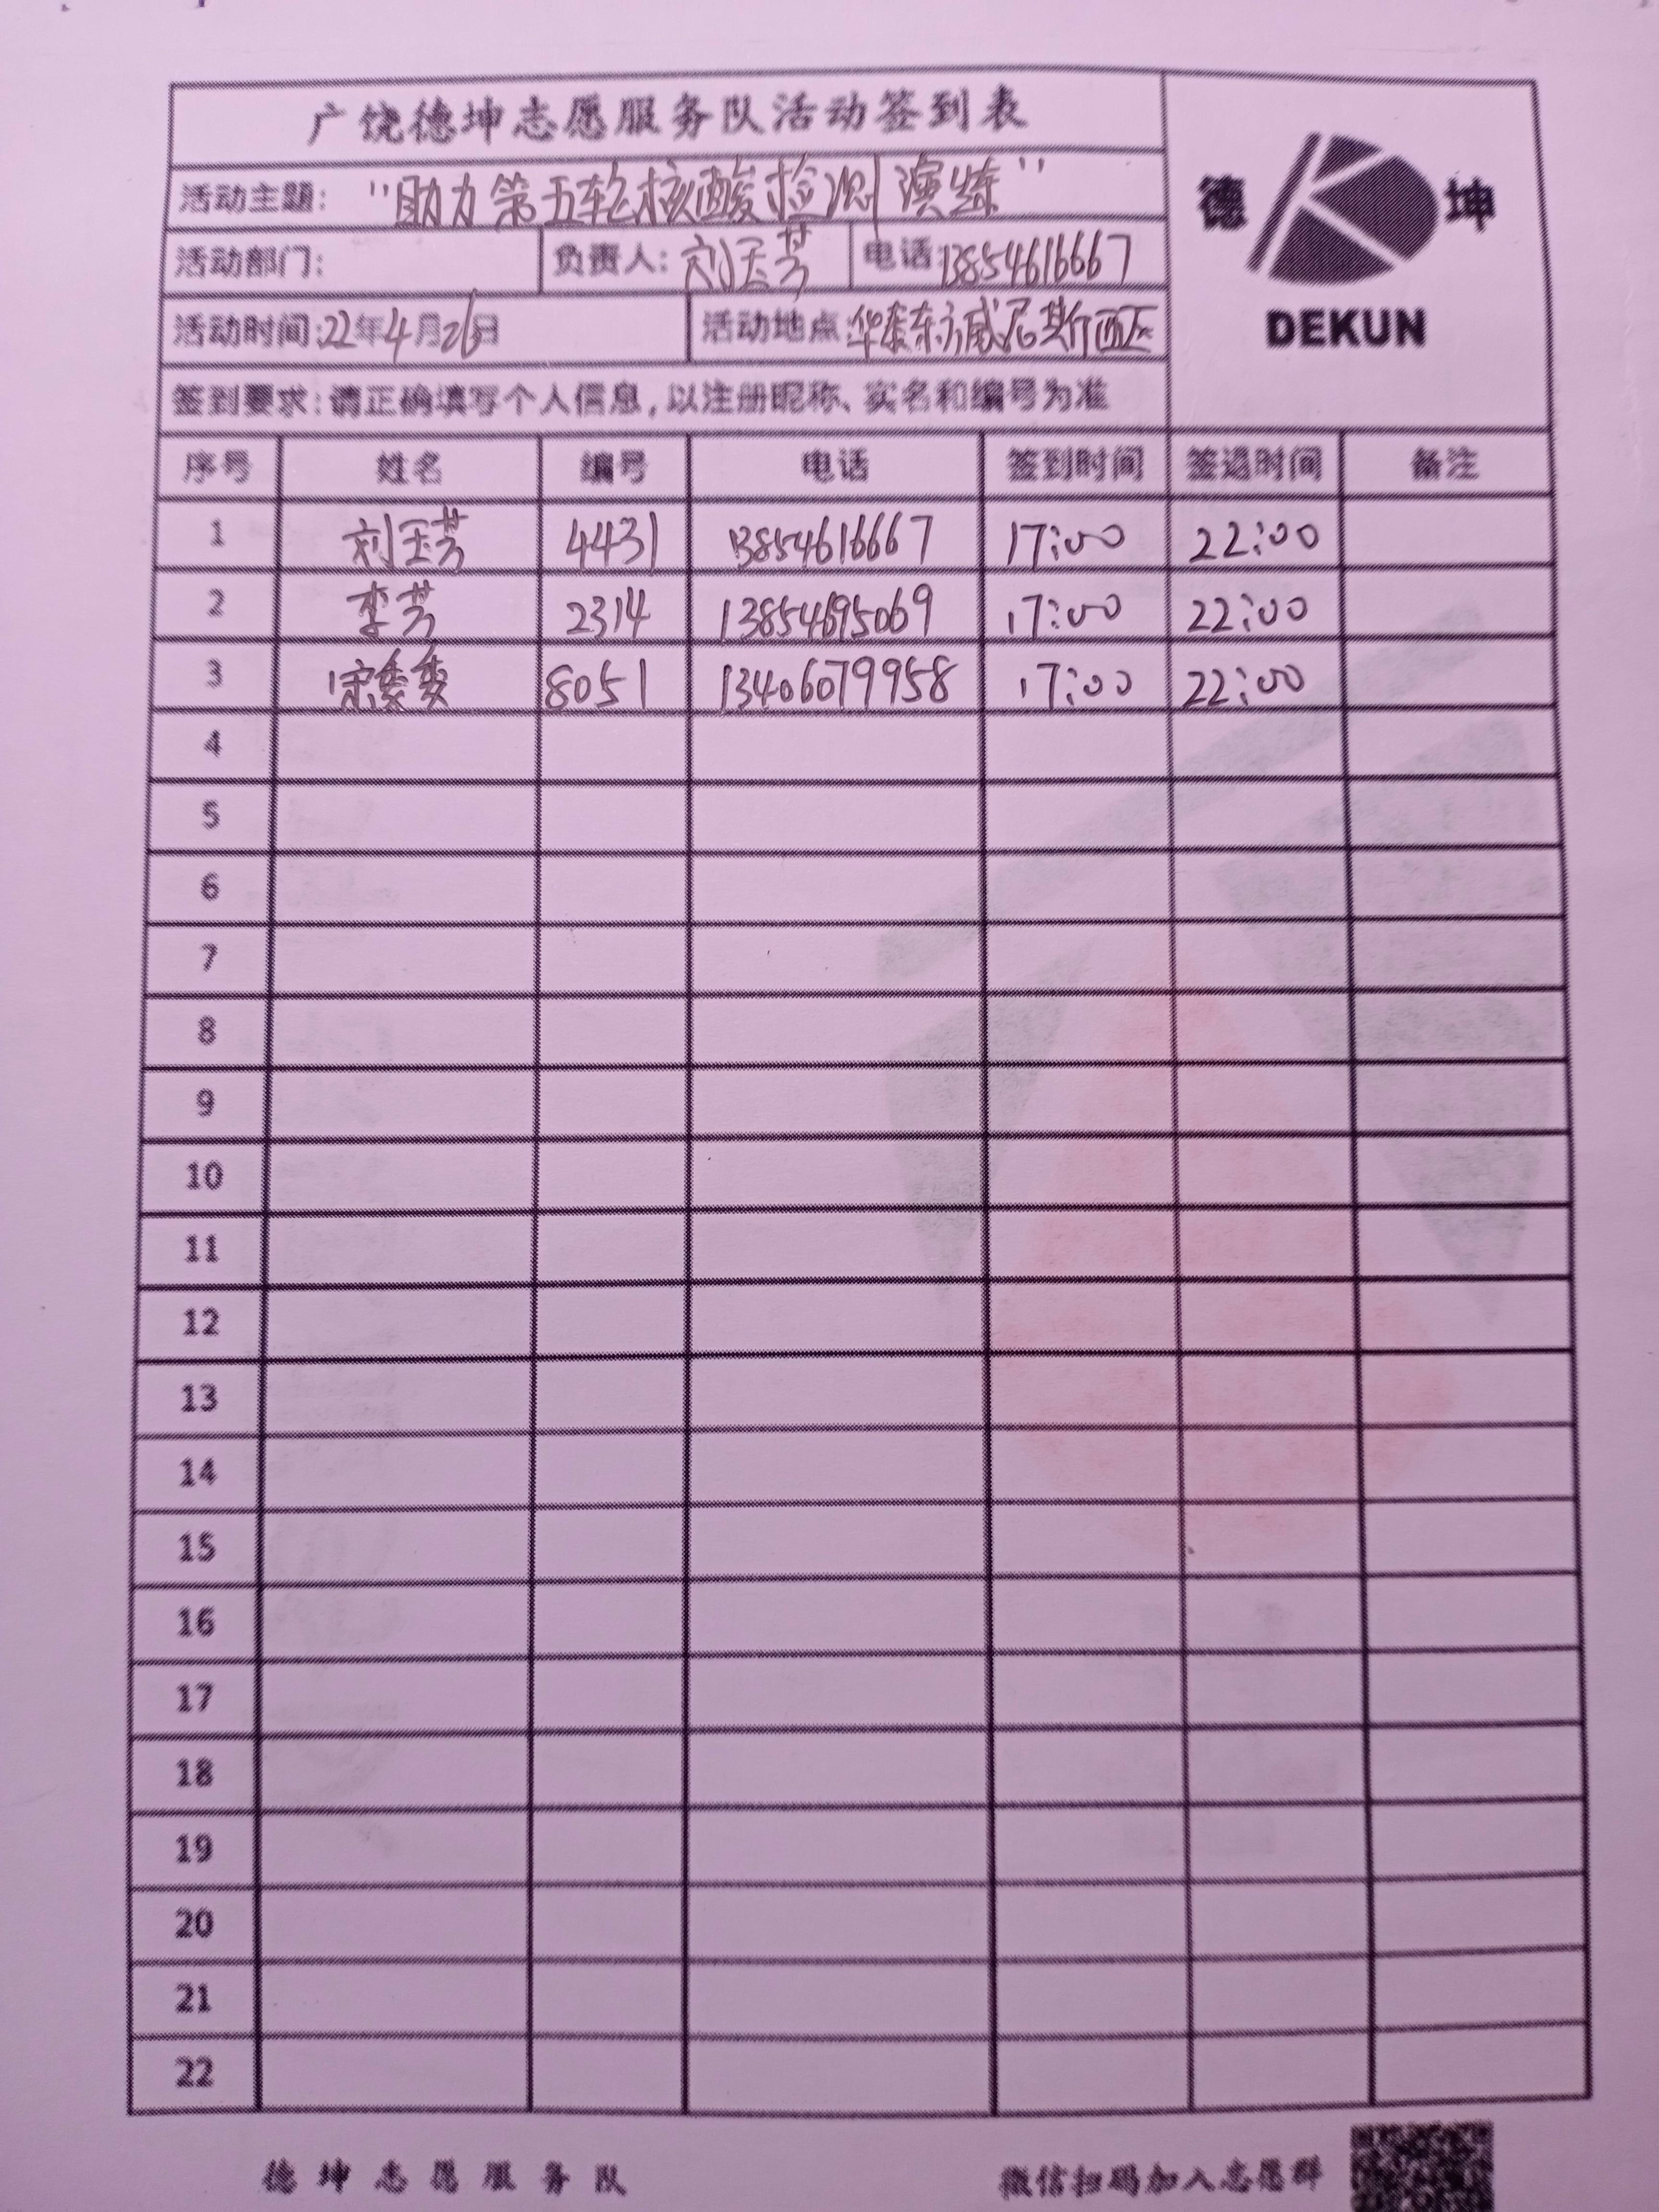 广饶德坤志愿服务队活动签到表
活动主题: "助力第五轮核酸检测演练"
德 坤
DEKUN
活动部门: 负责人: 刘玉芳 电话: 13854616667
活动时间: 22年4月26日 活动地点: 华泰东方威尼斯西区
签到要求: 请正确填写个人信息, 以注册昵称、实名和编号为准
序号 姓名 编号 电话 签到时间 签退时间 备注
1 刘玉芳 4431 13854616667 17:00 22:00
2 李芳 2314 13854695069 17:00 22:00
3 宋 8051 13406079958 17:00 22:00
4
5
6
7
8
9
10
11
12
13
14
15
16
17
18
19
20
21
22
德坤志愿服务队 微信扫码加入志愿群